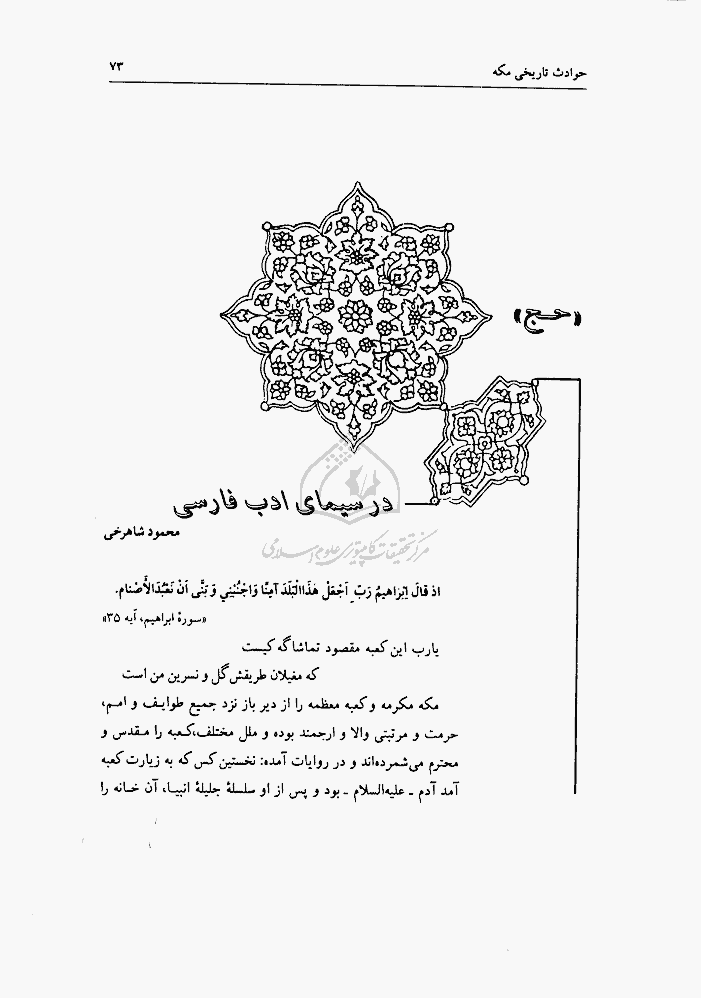 حوادث تاریخی مکه
۷۳
«حج»
در سیمای ادب فارسی
محمود شاهرخی
مرکز تحقیقات کامپیوتری علوم اسلامی
اذ قالَ اِبْراهیمُ رَبِّ اجْعَلْ هَذَا الْبَلَدَ آمِنًا وَاجْنُبْنِي وَ بَنَّی اَنْ نَعْبُدَالْأَصْنام.
«سورهٔ ابراهیم، آیه ۳۵»
یارب این کعبه مقصود تماشاگه کیست
که مغیلان طریقش گل و نسرین من است
مکه مکرمه و کعبه معظمه را از دیر باز نزد جمیع طوایف و امم،
حرمت و مرتبتی والا و ارجمند بوده و ملل مختلف، کعبه را مقدس و
محترم می‌شمرده‌اند و در روایات آمده: نخستین کس که به زیارت کعبه
آمد آدم ـ علیه‌السلام ـ بود و پس از او سلسلهٔ جلیلهٔ انبیا، آن خانه را